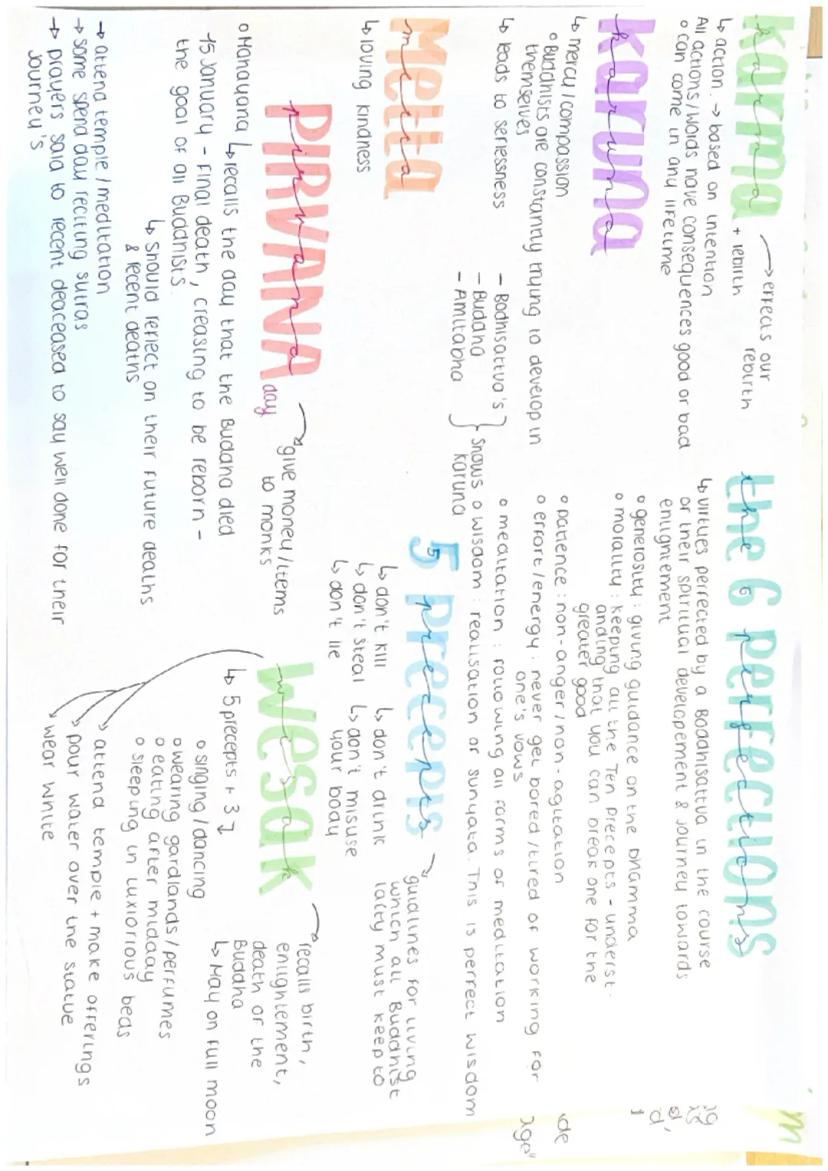 karma
+ rebirth
→ effects our
rebirth
↳ action. → based on intention
All actions/words have consequences good or bad
o can come in any lifetime
karuna
↳ mercy/compassion
o Buddhists are constantly trying to develop in
themselves
↳ leads to serlessness
- Bodhisattva's
- Buddha
- Amitabha
} Shows
karuna
Metta
metta
↳ loving kindness
PIRVANA
pirvana
day
→ give money/items
to monks
o Mahayana ↳ recalls the day that the Buddha died
-15 January - Final death, creasing to be reborn -
the goal of all Buddhists.
↳ should reflect on their future deaths
& recent deaths
→ attend temple/meditation
→ some spend day reciting sutras
→ prayers said to recent deaceased to say well done for their
journey's
the 6 perfections
↳ virtues perfected by a Bodhisattva in the course
of their spiritual developement & journey towards
enlightement
o generosity: giving guidance on the Dhamma
o morality: keeping all the Ten Precepts - underst-
anding that you can break one for the
greater good
o patience: non-anger/non-agitation
o effort/energy: never get bored/tired of working for
one's vows
o meditation: following all forms of meditation
o wisdom: realisation of sunyata. This is perfect wisdom
5 precepts
→ guidlines for living
which all Buddhist
laity must keep to
↳ don't kill
↳ don't steal
↳ don't lie
↳ don't drink
↳ don't misuse
your body
Wesak
wesak
→ recalls birth,
enlightement,
death of the
Buddha
↳ May on full moon
↳ 5 precepts + 3 ↴
o singing/dancing
o wearing gardlands/perfumes
o eating after midday
o sleeping in luxiorious beds
attend temple + make offerings
pour water over the statue
wear white